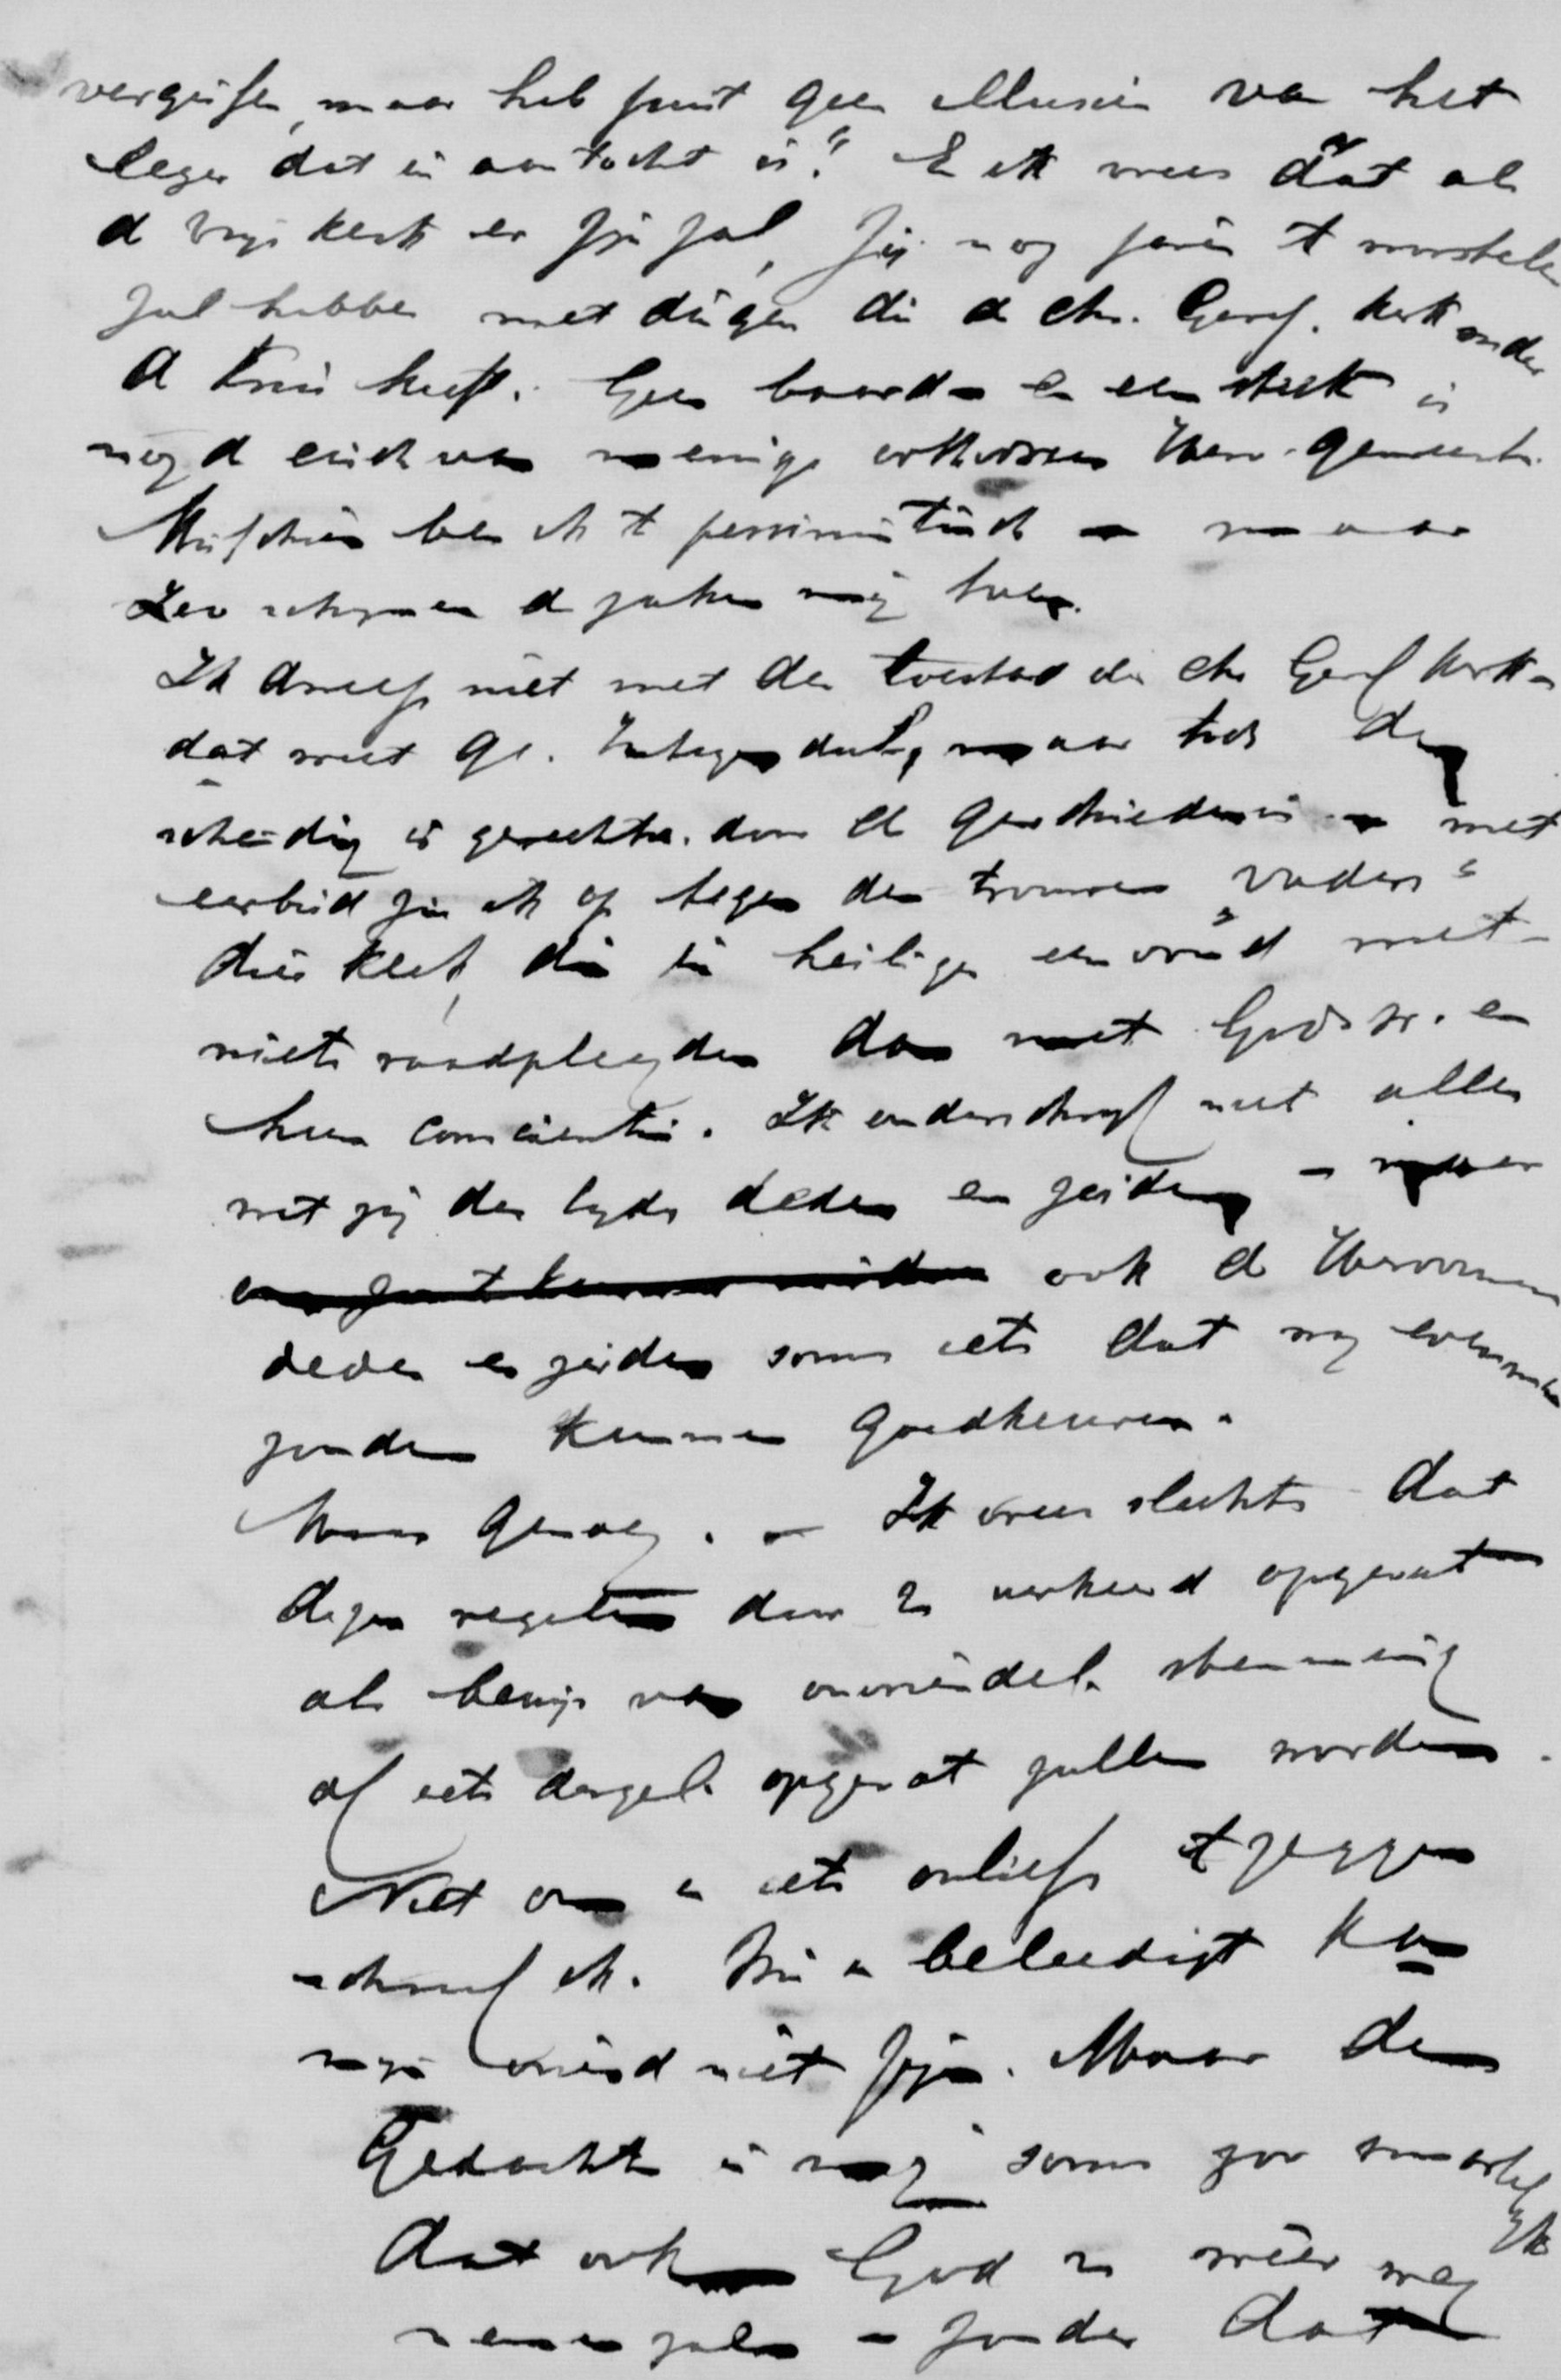 vergissen, maar heb juist geen illusies van het
leger dat in aantocht is." En ik vrees dat als
de vrije kerk er zijn zal, zij nog jaren te worstelen
zal hebben met dingen die de Chr. Geref. kerk onder
de knie heeft. Geen baard en een steek is
nog de eisch van menige orthodoxe Herv. gemeente.
Misschien ben ik te pessimistisch – maar
Zoo schijnen de zaken mij toe.
Ik dweep niet met den toestand der Chr Geref kerk –
dat weet ge. Integendeel, maar toch de
scheiding is gerechtv. door de geschiedenis – met
eerbied zie ik op tegen de trouwe "vaders"
dier kerk, die in heilige eenvoud met
niets raadpleegden dan met Gods w. en
hun conscientie. Ik onderschrijf niet alles
wat zij destijds deden en zeiden – maar
ook de Hervormden
deden en zeiden soms iets dat wij evenmin
zouden kunnen goedkeuren.
Maar genoeg. – Ik vrees slechts dat
deze regelen door u verkeerd opgevat
als bewijs van onvriendel. stemming
of iets dergel. opgevat zullen worden.
Niet om u iets onliefs te zeggen
schreef ik. Wie u beleedigt kan
mijn vriend niet zijn. Maar de
Gedachte is mij soms zoo smartelijk
dat ook God u weer weg
nemen zal – zonder dat